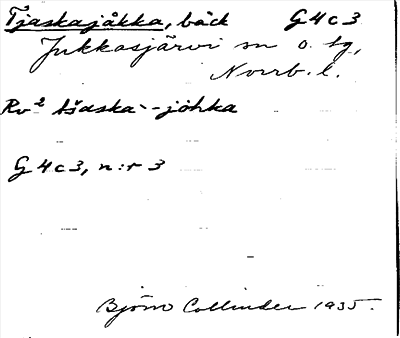 Tjaskajåkka, bäck G4c3
Jukkasjärvi sn o. tg,
Norrb. l.
Rv² tšaska`-johka
G4c3, n:r 3
Björn Collinder 1935.